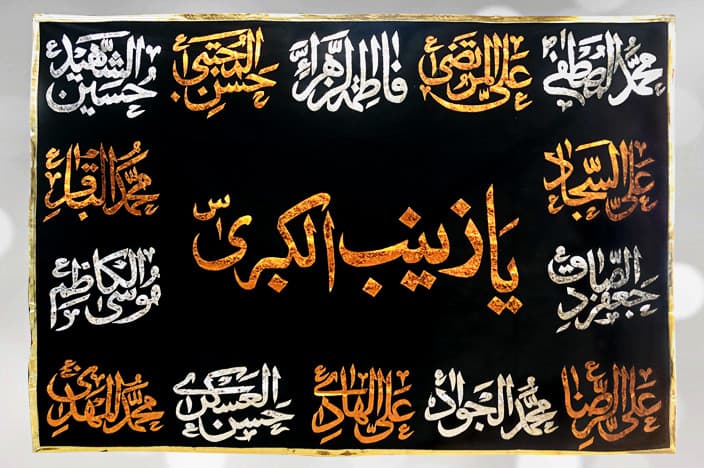 محمد المصطفىٰ علی المرتضیٰ فاطمة الزهراء حسن المجتبیٰ حسین الشهید
علی السجاد محمد الباقر
یا زینب الکبریٰ س
جعفر الصادق موسی الکاظم
علی الرضا محمد الجواد علی الهادی حسن العسکری محمد المهدی